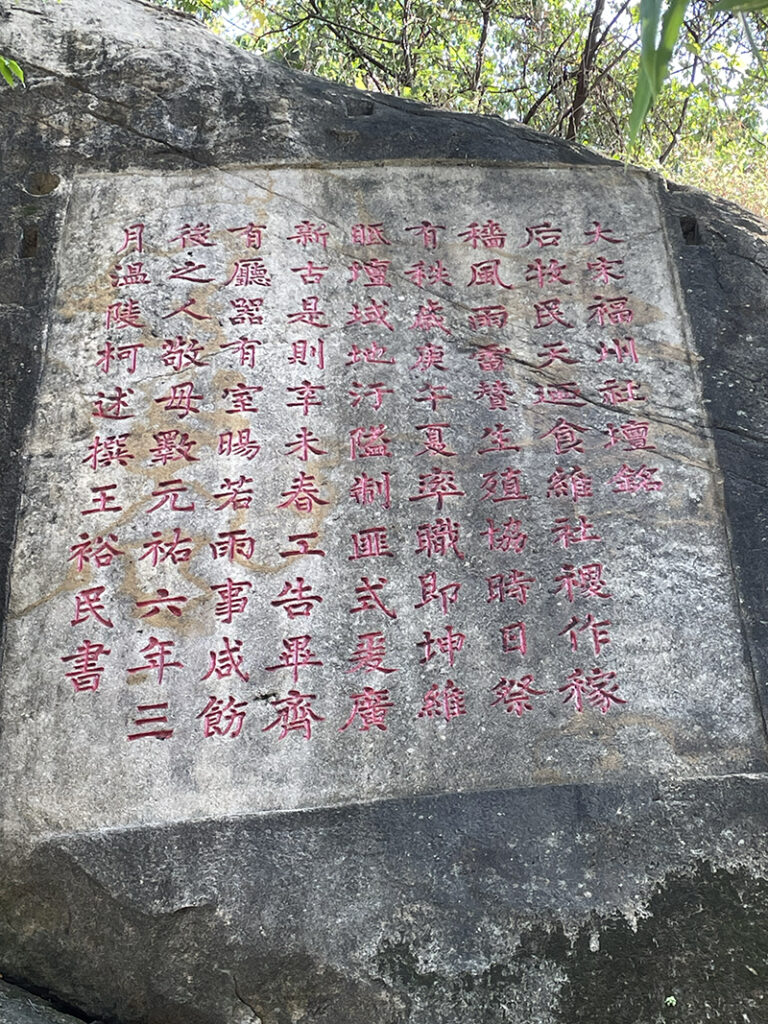 大宋福州社壇銘
后牧民天食維社稷作稼
穡風雨雷賛生殖協時日祭
有秩歲庚午夏率職即坤維
眡壇域地汙隘制匪式爰廣
新古是則辛未春工告畢齊
有廳器有室暘若雨事咸飭
後之人敬毋斁元祐六年三
月溫陵柯述撰王裕民書